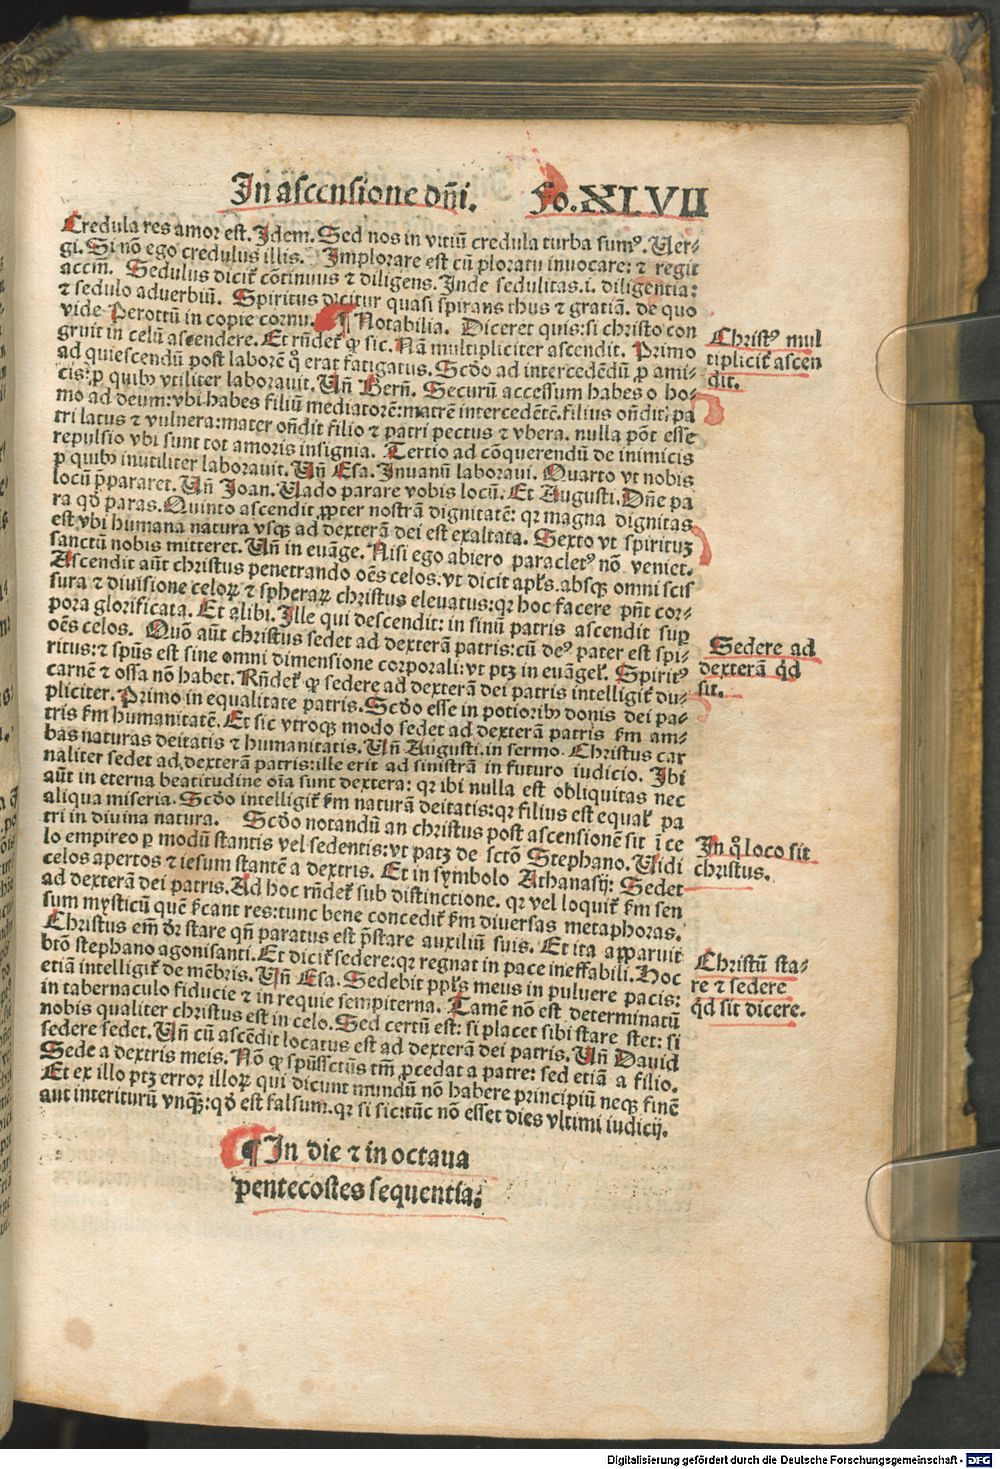 In ascensione dñi. fo. XLVII
Credula res amor est. Idem. Sed nos in vitiũ credula turba sumꝰ. Uer-
gi. Si nõ ego credulus illis. Implorare est cũ ploratu inuocare: ⁊ regit
accm̃. Sedulus dicit̃ cõtinuus ⁊ diligens. Inde sedulitas .i. diligentia:
⁊ sedulo aduerbiũ. Spiritus dicitur quasi spirans thus ⁊ gratiã. de quo
vide Perottũ in copie cornu. ¶ Notabilia. Diceret quis: si christo con
gruit in celũ ascendere. Et rñdet̃ ꝙ sic. Nã multipliciter ascendit. Primo
ad quiescendũ post laborẽ q̃ erat fatigatus. Scđo ad intercedẽdũ ꝓ ami-
cis: ꝑ quibꝫ vtiliter laborauit. Uñ Bern̄. Securũ accessum habes o ho-
mo ad deum: vbi habes filiũ mediatorẽ: matrẽ intercedẽtẽ. filius oñdit pa
tri latus ⁊ vulnera: mater oñdit filio ⁊ patri pectus ⁊ vbera. nulla põt esse
repulsio vbi sunt tot amoris insignia. Tertio ad cõquerendũ de inimicis
ꝑ quibꝫ inutiliter laborauit. Uñ Esa. Inuanũ laboraui. Quarto vt nobis
locũ p̃pararet. Uñ Joan. Uado parare vobis locũ. Et Augusti. Dñe pa
ra qđ paras. Quinto ascendit ꝓpter nostrã dignitatẽ: qꝛ magna dignitas
est vbi humana natura vsqꝫ ad dexterã dei est exaltata. Sexto vt spirituꝫ
sanctũ nobis mitteret. Uñ in euãge. Nisi ego abiero paracletꝰ nõ veniet.
Ascendit aũt christus penetrando oẽs celos. vt dicit apl̃s. absqꝫ omni scis
sura ⁊ diuisione celoꝝ ⁊ spheraꝝ christus eleuatus: qꝛ hoc facere pñt cor-
pora glorificata. Et alibi. Ille qui descendit: in sinũ patris ascendit suꝑ
oẽs celos. Quõ aũt christus sedet ad dexterã patris: cũ deꝰ pater est spi-
ritus: ⁊ spũs est sine omni dimensione corporali: vt ptꝫ in euãgel̃. Spiritꝰ
carnẽ ⁊ ossa nõ habet. Rñdet̃ ꝙ sedere ad dexterã dei patris intelligit̃ du-
pliciter. Primo in equalitate patris. Scđo esse in potioribꝫ donis dei pa-
tris f̃m humanitatẽ. Et sic vtroqꝫ modo sedet ad dexterã patris f̃m am-
bas naturas deitatis ⁊ humanitatis. Uñ Augusti. in sermo. Christus car
naliter sedet ad dexterã patris: ille erit ad sinistrã in futuro iudicio. Ibi
aũt in eterna beatitudine oĩa sunt dextera: qꝛ ibi nulla est obliquitas nec
aliqua miseria. Scđo intelligit̃ f̃m naturã deitatis: qꝛ filius est equal̃ pa
tri in diuina natura. Scđo notandũ an christus post ascensionẽ sit ĩ ce
lo empireo ꝑ modũ stantis vel sedentis: vt patꝫ de sctõ Stephano. Uidi
celos apertos ⁊ iesum stantẽ a dextris. Et in symbolo Athanasij: Sedet
ad dexterã dei patris. Ad hoc rñdet̃ sub distinctione. qꝛ vel loquit̃ f̃m sen
sum mysticũ quẽ f̃cant res: tunc bene concedit̃ f̃m diuersas metaphoras.
Christus em̃ dr̃ stare qñ paratus est p̃stare auxiliũ suis. Et ita apparuit
btõ stephano agonisanti. Et dicit̃ sedere: qꝛ regnat in pace ineffabili. Hoc
etiã intelligit̃ de mẽbris. Uñ Esa. Sedebit ppl̃s meus in puluere pacis:
in tabernaculo fiducie ⁊ in requie sempiterna. Tamẽ nõ est determinatũ
nobis qualiter christus est in celo. Sed certũ est: si placet sibi stare stet: si
sedere sedet. Uñ cũ ascẽdit locatus est ad dexterã dei patris. Uñ Dauid
Sede a dextris meis. Nõ ꝙ spũssctũs tm̃ ꝓcedat a patre: sed etiã a filio.
Et ex illo ptꝫ error illoꝝ qui dicunt mundũ nõ habere principiũ neqꝫ finẽ
aut interiturũ vnqꝫ: qđ est falsum. qꝛ si sic: tũc nõ esset dies vltimi iudicij.
¶ In die ⁊ in octaua
pentecostes sequentia:
Christꝰ mul
tiplicit̃ ascen
dit.
Sedere ad
dexterã qđ
sit.
In q̃ loco sit
christus.
Christũ sta-
re ⁊ sedere
qđ sit dicere.
Digitalisierung gefördert durch die Deutsche Forschungsgemeinschaft - DFG